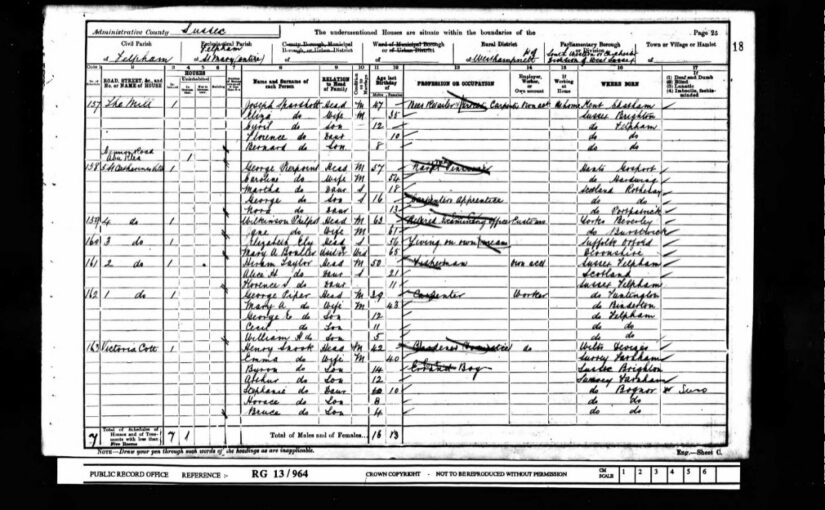 Administrative County Sussex
The undermentioned Houses are situate within the boundaries of the
Page 25
18
Civil Parish
of Felpham
Ecclesiastical Parish
Felpham
of St Mary (entire)
County Borough, Municipal
Borough, or Urban District
Ward of Municipal Borough
or of Urban District
Rural District
of Westhampnett
Parliamentary Borough
or Division
Town or Village or Hamlet
of
HOUSES
ROAD, STREET, &c., and No. or NAME of HOUSE
Name and Surname of each Person
RELATION to Head of Family
Age last Birthday of
PROFESSION OR OCCUPATION
Employer, Worker, or Own account
If Working at Home
WHERE BORN
(1) Deaf and Dumb
(2) Blind
(3) Lunatic
(4) Imbecile, feeble-minded
157 The Mill 1 Joseph Sparshott Head M 47 Carpenter Own acct At home Kent Chatham
Eliza do Wife M 35 Sussex Brighton
Cyril do Son 12 do Felpham
Florence do Daur 10 do do
Bernard do Son 8 do do
158 1 George Pierpoint Head M 57 Naval Pensioner Hants Gosport
Caroline do Wife M 54 do
Martha do Daur S 18 Scotland Rothesay
George do Son S 16 Carpenters Apprentice do do
Nora do Daur 13 do Portpatrick
159 4 do 1 Wilkinson Philpot Head M 63 Retired Officer Customs Yorks Beverley
Jane do Wife M 61 do
160 3 do 1 Elizabeth Ely Head S 56 Living on own means Suffolk Orford
Mary A Visitor Wid 65 Devonshire
161 2 do 1 Hiram Taylor Head M 50 Fisherman own acct Sussex Felpham
Alice H do Daur S 21 Scotland
Florence S do Daur 11 Sussex Felpham
162 1 do 1 George Piper Head M 39 Carpenter Worker do
Mary A do Wife M 43 do Binderton
George E do Son 12 do Felpham
Cecil do Son 11 do do
William H do Son 5 do do
163 Victoria Cott 1 Henry Snook Head M 42 do Wilts
Emma do Wife M 40 Surrey Farnham
Byron do Son 14 Errand Boy Sussex Brighton
Arthur do Son 12 Surrey Farnham
Stephanie do Daur 10 do Bognor
Horace do Son 8 do do
Bruce do Son 4 do do
7 Total of Schedules of Houses and of Tenements with less than Five Rooms 7 1 Total of Males and of Females... 16 13
NOTE—Draw your pen through such words of the headings as are inapplicable.
Eng.—Sheet C.
PUBLIC RECORD OFFICE REFERENCE :- RG 13/964 CROWN COPYRIGHT - NOT TO BE REPRODUCED WITHOUT PERMISSION CM SCALE 1 2 3 4 5 6